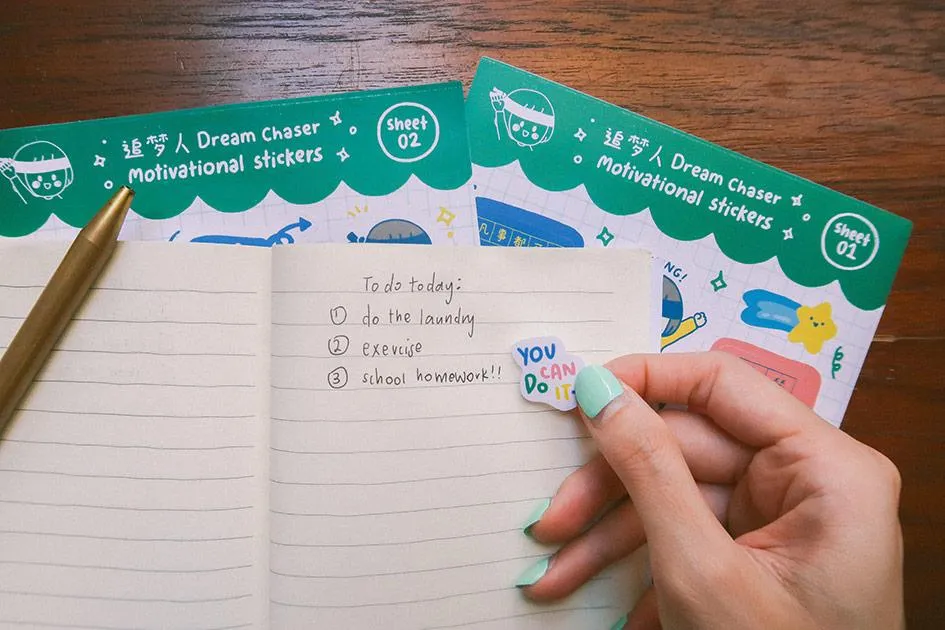 追梦人 Dream Chaser
Motivational stickers
Sheet
02
追梦人 Dream Chaser
Motivational stickers
Sheet
01
凡事都
NG!
To do today:
① do the laundry
② exercise
③ school homework!!
YOU
CAN
Do IT